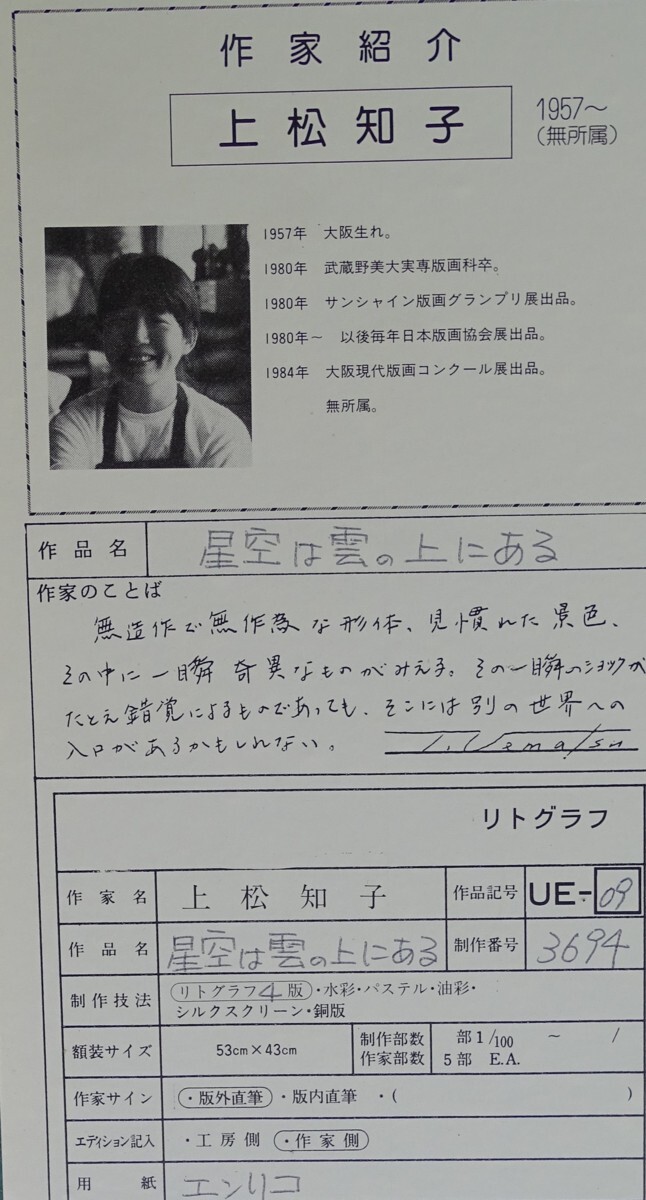 作家紹介
上松知子
1957〜
(無所属)
1957年 大阪生れ。
1980年 武蔵野美大実専版画科卒。
1980年 サンシャイン版画グランプリ展出品。
1980年〜 以後毎年日本版画協会展出品。
1984年 大阪現代版画コンクール展出品。
無所属。
作品名 星空は雲の上にある
作家のことば
無造作で無作為な形体、見慣れた景色、
その中に一瞬奇異なものがみえる。その一瞬のショックが
たとえ錯覚によるものであっても、そこには別の世界への
入口があるかもしれない。 T.Uematsu
リトグラフ
作家名 上松知子 作品記号 UE-09
作品名 星空は雲の上にある 制作番号 3694
制作技法 リトグラフ4版・水彩・パステル・油彩・
シルクスクリーン・銅版
額装サイズ 53cm×43cm 制作部数 部1/100 〜 /
作家部数 5部 E.A.
作家サイン ・版外直筆 ・版内直筆 ・( )
エディション記入 ・工房側 ・作家側
用紙 エンリコ